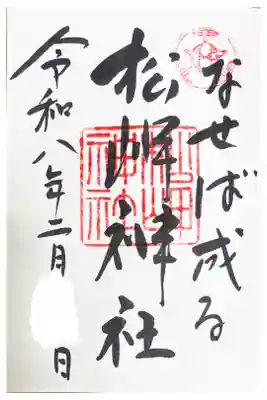 なせば成る
松岬神社
令和八年二月 日